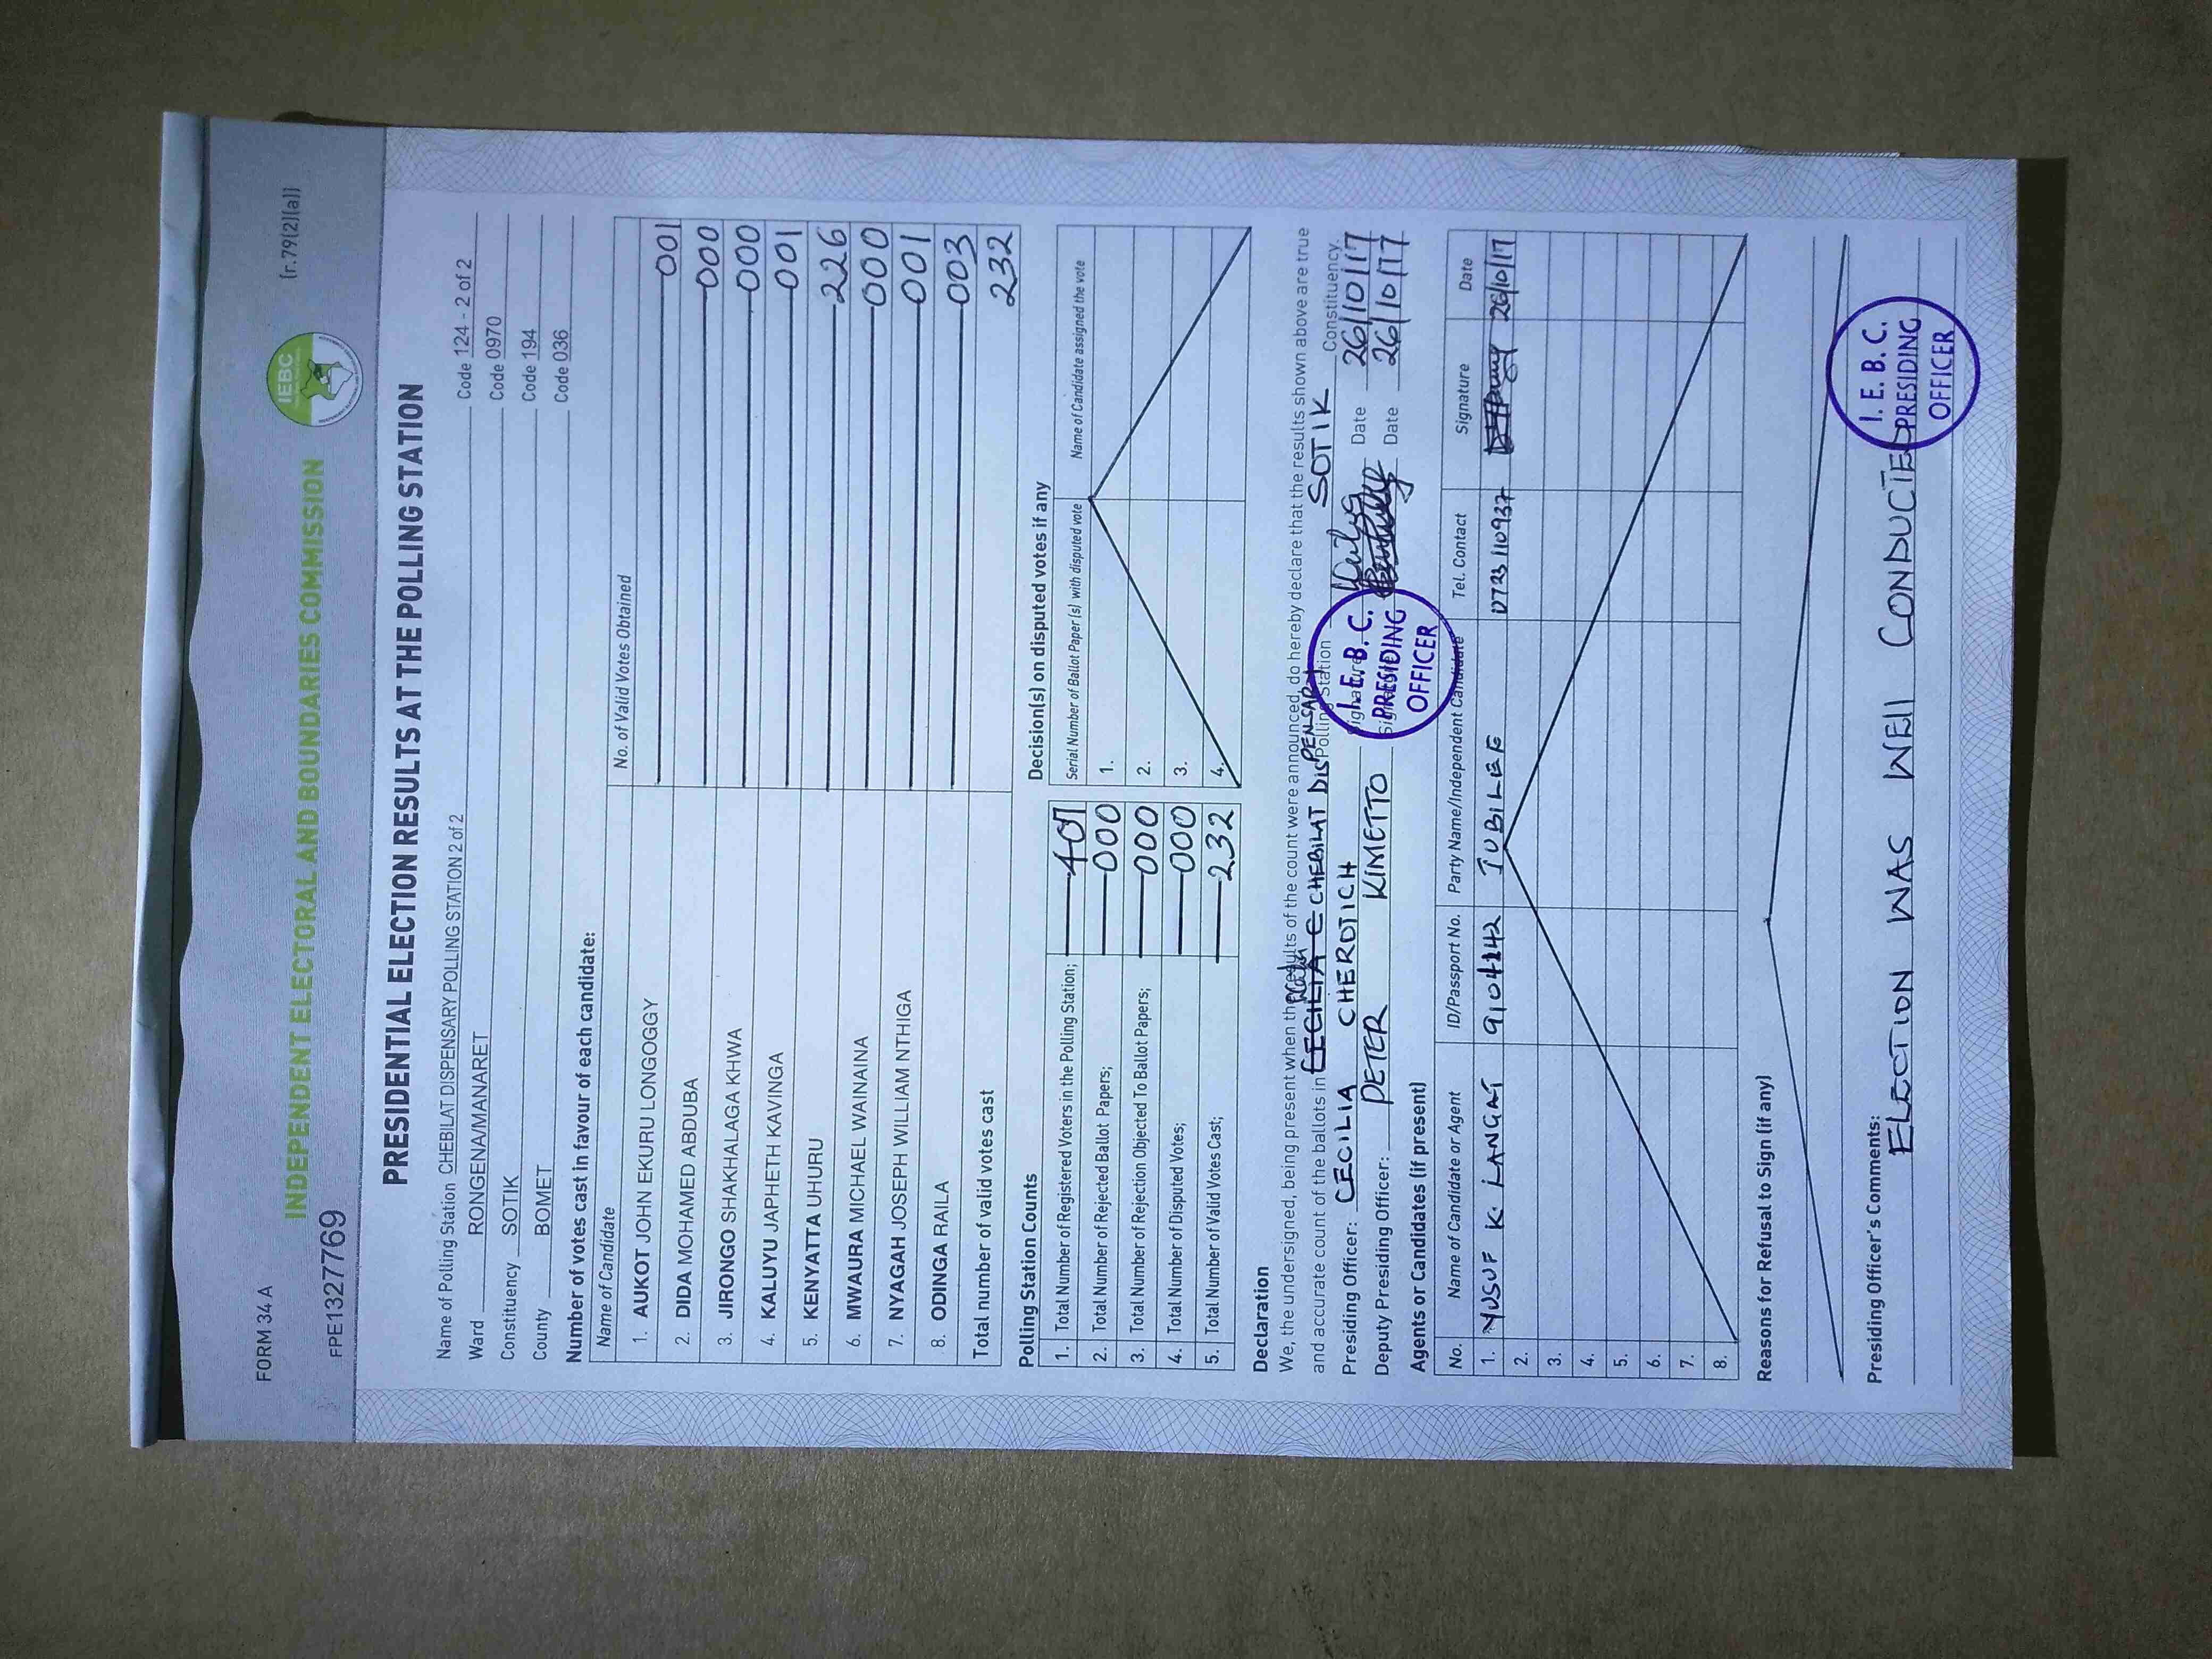 FORM 34 A
(r.79(2)(a))
IEBC
INDEPENDENT ELECTORAL AND BOUNDARIES COMMISSION
FPE1327769
PRESIDENTIAL ELECTION RESULTS AT THE POLLING STATION
Name of Polling Station CHEBILAT DISPENSARY POLLING STATION 2 of 2 Code 124 - 2 of 2
Ward RONGENA/MANARET Code 0970
Constituency SOTIK Code 194
County BOMET Code 036
Number of votes cast in favour of each candidate:
Name of Candidate No. of Valid Votes Obtained
1. AUKOT JOHN EKURU LONGOGGY 001
2. DIDA MOHAMED ABDUBA 000
3. JIRONGO SHAKHALAGA KHWA 000
4. KALUYU JAPHETH KAVINGA 001
5. KENYATTA UHURU 226
6. MWAURA MICHAEL WAINAINA 000
7. NYAGAH JOSEPH WILLIAM NTHIGA 001
8. ODINGA RAILA 003
Total number of valid votes cast 232
Polling Station Counts
1. Total Number of Registered Voters in the Polling Station; 401
2. Total Number of Rejected Ballot Papers; 000
3. Total Number of Rejection Objected To Ballot Papers; 000
4. Total Number of Disputed Votes; 000
5. Total Number of Valid Votes Cast; 232
Decision(s) on disputed votes if any
Serial Number of Ballot Paper (s) with disputed vote Name of Candidate assigned the vote
1.
2.
3.
4.
Declaration
We, the undersigned, being present when the results of the count were announced, do hereby declare that the results shown above are true
and accurate count of the ballots in CECILIA C CHEBILAT DISPENSARY Polling Station SOTIK Constituency.
Presiding Officer: CECILIA CHEROTICH Signature Date 26/10/17
Deputy Presiding Officer: PETER KIMETTO Date 26/10/17
I. E. B. C.
PRESIDING
OFFICER
Agents or Candidates (if present)
No. Name of Candidate or Agent ID/Passport No. Party Name/Independent Candidate Tel. Contact Signature Date
1. YUSUF K. LANGAT 9104142 JUBILEE 0723110937 26/10/17
2.
3.
4.
5.
6.
7.
8.
Reasons for Refusal to Sign (if any)
Presiding Officer's Comments:
ELECTION WAS WELL CONDUCTED
I. E. B. C.
PRESIDING
OFFICER